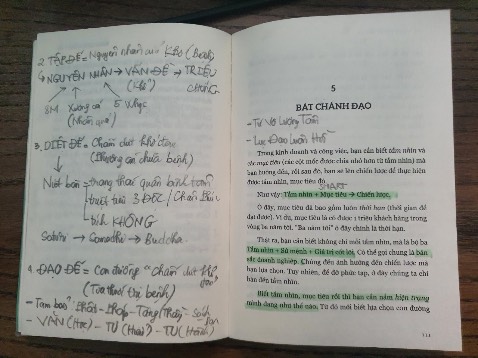 2. TẬP ĐẾ = Nguyên nhân của Khổ (Bệnh)
↳ NGUYÊN NHÂN → VẤN ĐỀ → TRIỆU
(Khổ) CHỨNG
5M Xương cá 5 Whys
(Nhân quả)
3. DIỆT ĐẾ = Chấm dứt khổ đau
(Phương án chữa bệnh)
Niết bàn = trạng thái quân bình tâm
3 ĐỘC /
tính KHÔNG
→ Samadhi → Buddha
4. ĐẠO ĐẾ = Con đường "Chấm dứt khổ
- Tam bảo: Phật - Pháp - Tăng (Thầy)
- VĂN (Học) - TƯ (Hiểu) - TU (Hành)
5
BÁT CHÁNH ĐẠO
- Tứ Vô Lượng Tâm
- Lục Đạo Luân Hồi
Trong kinh doanh và công việc, bạn cần biết tầm nhìn và
các mục tiêu (các cột mốc được chia nhỏ hơn từ tầm nhìn) mà
bạn hướng đến, rồi sau đó, bạn sẽ lên chiến lược để thực hiện
được tầm nhìn, mục tiêu đó.
SMART
Như vậy: Tầm nhìn + Mục tiêu → Chiến lược.
Ở đây, mục tiêu đã bao gồm luôn thời hạn (thời gian để
đạt được). Ví dụ, mục tiêu là có được 1 triệu khách hàng trong
vòng ba năm tới. "Ba năm tới" ở đây chính là thời hạn.
Thật ra, bạn cần biết không chỉ mỗi tầm nhìn, mà là bộ ba
Tầm nhìn + Sứ mệnh + Giá trị cốt lõi. Có thể gọi chung là bản
sắc doanh nghiệp. Chúng đều ảnh hưởng đến chiến lược mà
bạn lựa chọn. Tuy nhiên, để đỡ phức tạp, ở đây chúng ta chỉ
bàn đến tầm nhìn.
Biết tầm nhìn, mục tiêu rồi thì bạn cần nắm hiện trạng
mình đang như thế nào. Từ đó mới biết lựa chọn con đường